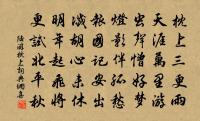 枕上三更雨
天涯萬里游
虫聲憎好夢
燈影伴孤愁
報國計安出
滅胡心未休
明年起飛將
更試北平秋
陸游枕上詞